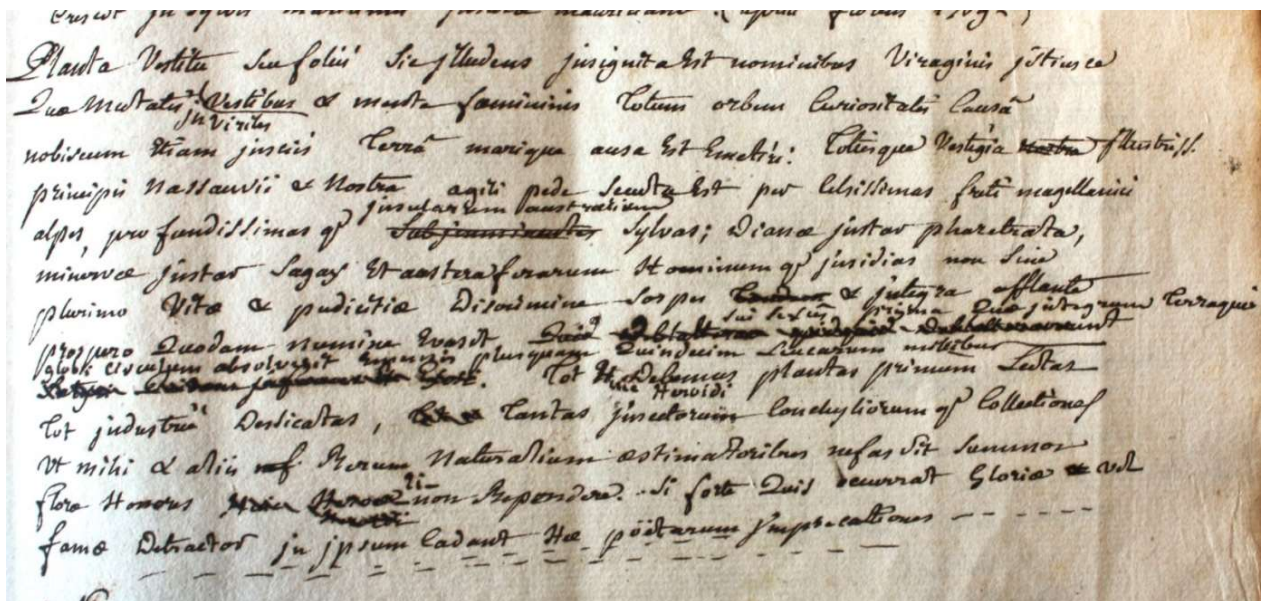 Crescit in sylvis
Planta Vestitu seu foliis sic illudens jnsignita Est nominibus Viraginis jstiusce
Quæ Mutatis Vestibus & mente fœmininis Totum orbem Curiositatis Causâ
jn Viriles
nobiscum Etiam jnsciis Terrâ marique ausa Est Emetiri. Totiesque Vestigia nostra jllustriss.
principis Nassauvii & Nostra agili pede secuta Est per Celsissimas freti magellanici
jnsularum australium
alpes, profundissimas q; sylvas; Dianæ jnstar pharetrata,
minervæ jnstar Sagax Et austera ferarum Hominum q; jnsidias non Sine
plurimo Vitæ & pudicitiæ Discrimine Sospes & jntegra afflante
sui sexûs prima Quæ jntegrum Terraquei
prospero Quodam numine Evasit
globi circulum absolverit Emensis plusquam Quindecim Leucarum millibus
Tot Debemus plantas primum Lectas
Huic Heroidi
Tot jndustriè Dessicatas, Tantas jnsectorum Conchyliorum q; Collectiones
Vt mihi & aliis Rerum Naturalium æstimatoribus nefas sit summos
floræ Honores non Rependere. Si forte Quis occurrat Gloriæ vel
famæ Detractor jn jpsum Cadant Hæ pöetarum jmprecationes